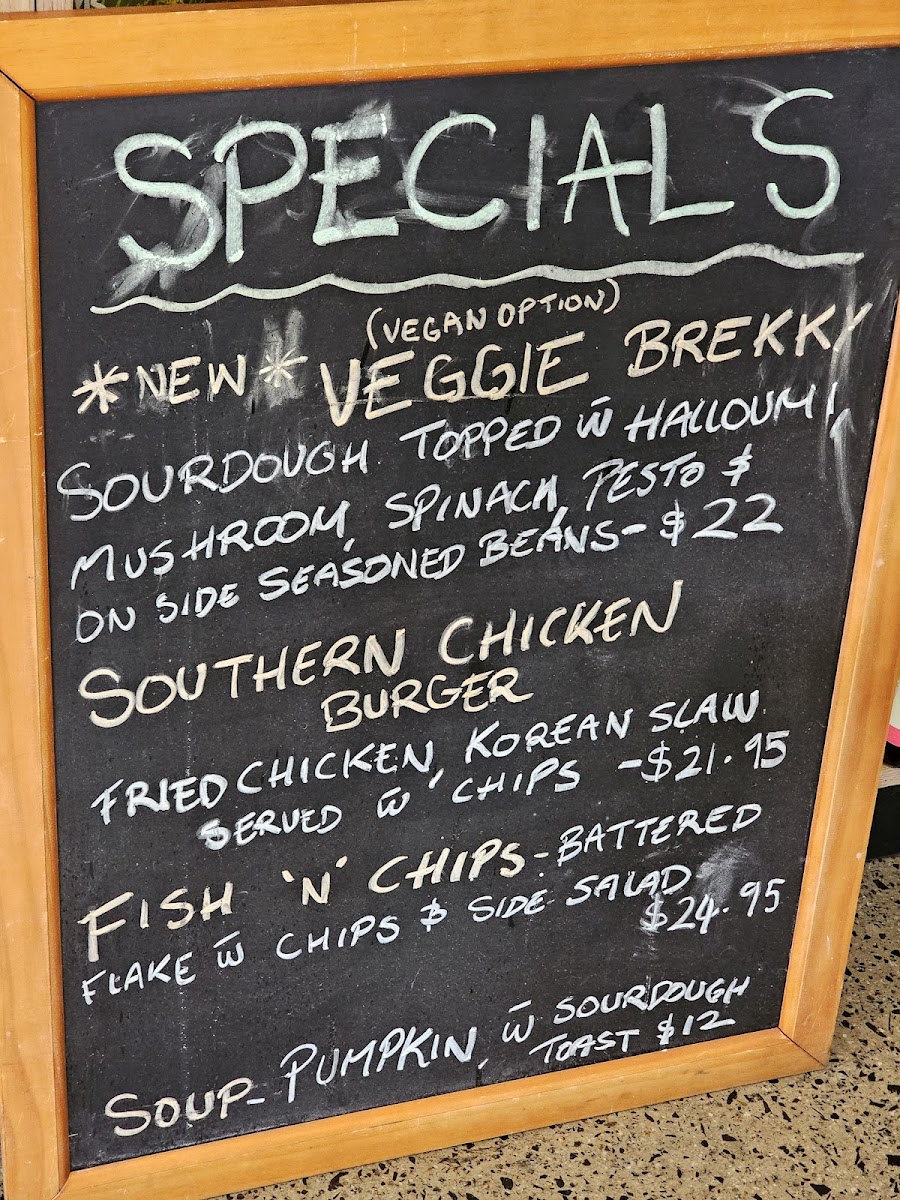 SPECIALS
(VEGAN OPTION)
*NEW* VEGGIE BREKKY
SOURDOUGH TOPPED w̄ HALLOUMI,
MUSHROOM, SPINACH, PESTO &
ON SIDE SEASONED BEANS - $22
SOUTHERN CHICKEN
BURGER
FRIED CHICKEN, KOREAN SLAW
SERVED w̄ CHIPS - $21.95
FISH 'N' CHIPS - BATTERED
FLAKE w̄ CHIPS & SIDE SALAD
$24.95
SOUP - PUMPKIN, w̄ SOURDOUGH
TOAST $12